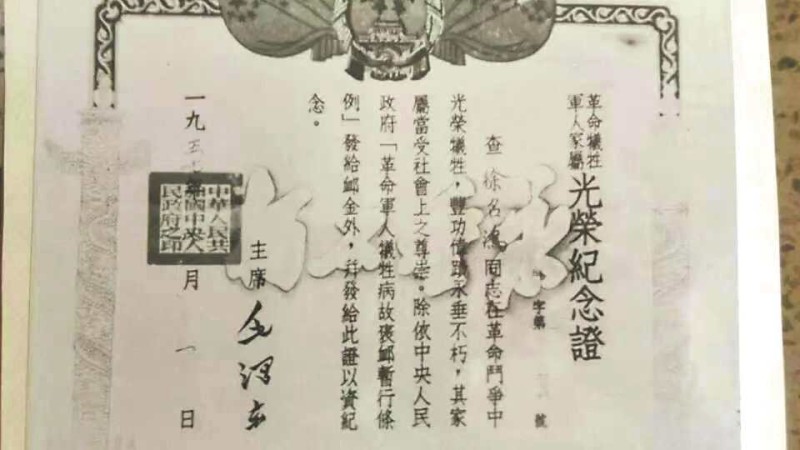 革命犧牲
軍人家屬
光榮紀念證
字第 號
查徐名 同志在革命鬥爭中
光榮犧牲,豐功偉蹟永垂不朽,其家
屬當受社會上之尊崇。除依中央人民
政府「革命軍人犧牲病故褒卹暫行條
例」發給卹金外,并發給此證以資紀
念。
主席 毛澤東
一九五 月一日
中華人民共
和國中央人
民政府之印